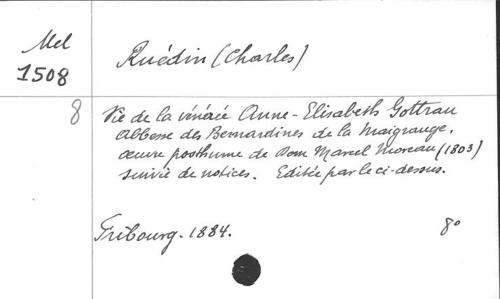 Mel
1508
8
Ruédin (Charles)
Vie de la vénérée Anne-Elisabeth Gottrau
Abbesse des Bernardines de la Maigrauge,
œuvre posthume de Dom Marcel Moreau (1803)
suivie de notices. Editée par le ci-dessus.
Fribourg. 1884.
8°